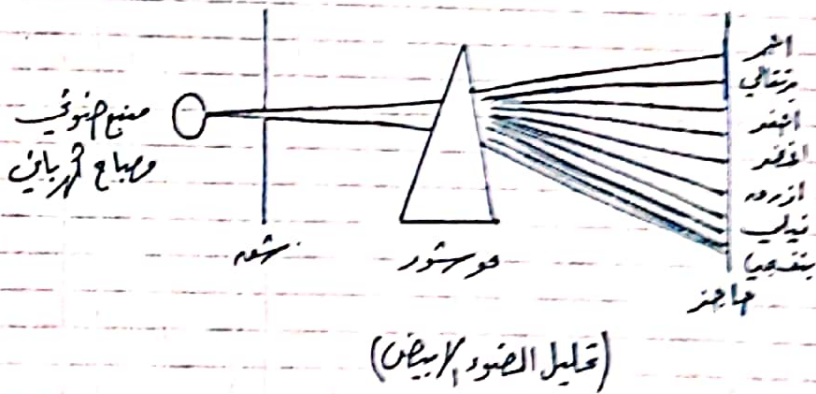 منبع ضوئي
مصباح كهربائي
شق
موشور
احمر
برتقالي
اصفر
اخضر
ازرق
نيلي
بنفسجي
حاجز
(تحليل الضوء الابيض)